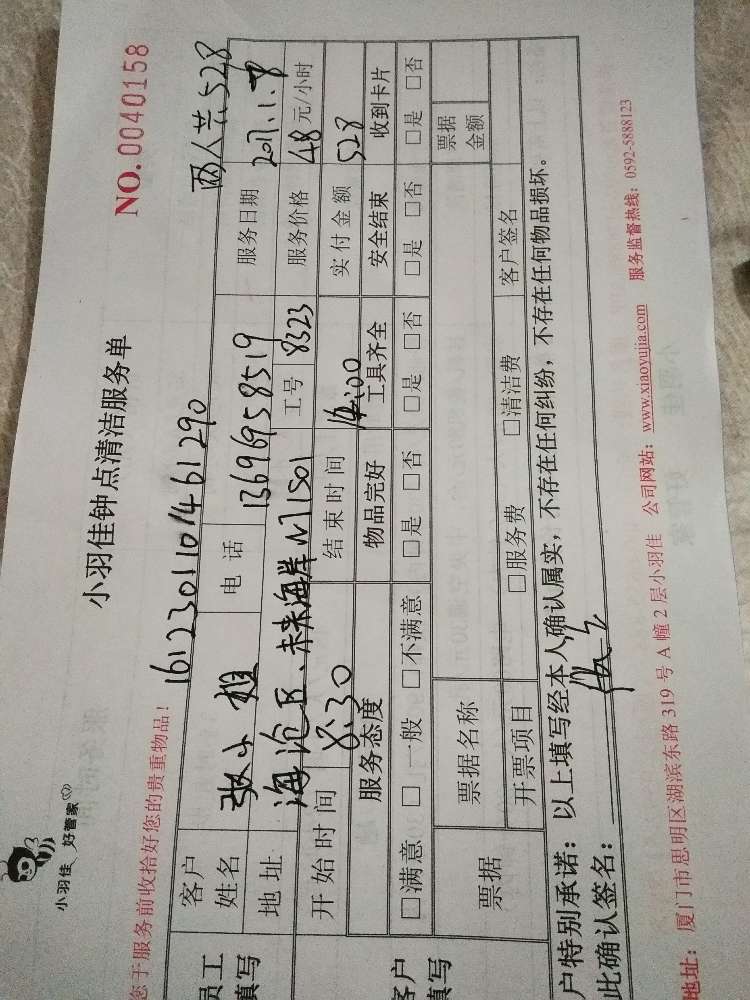 小羽佳 好管家
小羽佳钟点清洁服务单
NO.0040158
您于服务前收拾好您的贵重物品!
1612301101461290
两人共528
员工
填写
客户
姓名
张小姐
电 话
13696958519
服务日期
2017.1.8
地址
海沧区、未来海岸
1501
工号
8323
服务价格
48元/小时
开始时间
8:30
结束时间
14:00
实付金额
528
客户
填写
服务态度
物品完好
工具齐全
安全结束
收到卡片
□满意 □ 一般 □不满意
□是 □否
□是 □否
□是 □否
□是 □否
票据
票据名称
票据
金额
开票项目
□服务费
□清洁费
客户签名
户特别承诺:以上填写经本人确认属实,不存在任何纠纷,不存在任何物品损坏。
此确认签名:
地址:厦门市思明区湖滨东路 319 号 A 幢 2 层小羽佳 公司网站:www.xiaoyujia.com 服务监督热线:0592-5888123